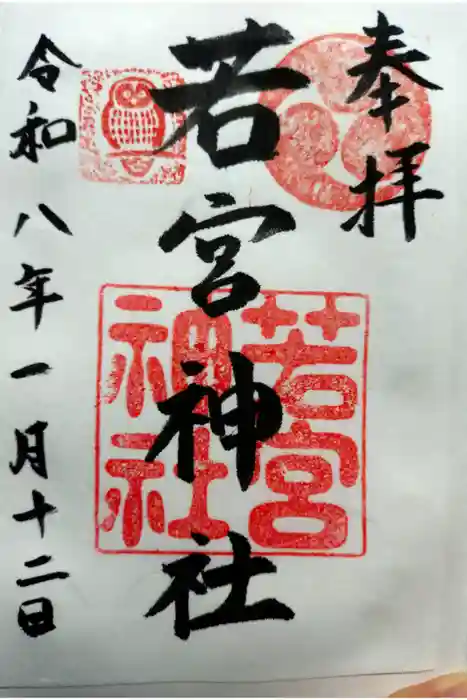 奉拝
若宮神社
令和八年一月十二日
若宮
神社